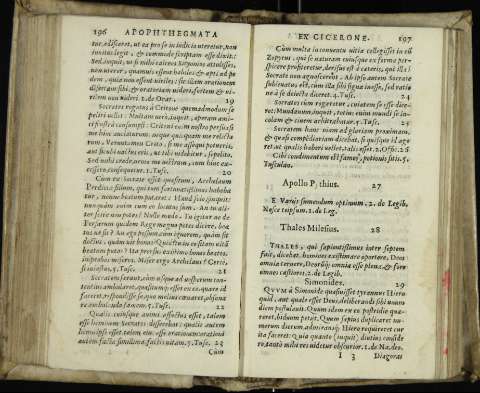 196 APOPHTHEGMATA
tor, adiscēret, ut ea pro se in iudicio uteretur, non
inuitus legit, & commode scriptam esse dixit:
Sed, inquit, ut si mihi calceos Sicyonios attulisses,
non uterer, quamuis essent habiles & apti ad pe
dem, quia non essent uiriles: sic illam orationem
disertam sibi & oratoriam uideri, fortem & ui-
rilem non uideri. 1. de Orat. 19
Socrates rogatus à Critone quemadmodum se
peliri uellet: Multam uerò, inquit, operam ami-
ci frustrà consumpsi: Critoni enim nostro persuasi
me hinc auolaturum: neque quicquam me relictu
rum. Veruntamen Crito, si me assequi potueris,
aut sicubi nactus eris, ut tibi uidebitur, sepelito.
Sed mihi crede, nemo me uestrum, cum hinc ex-
cessero, consequetur. 1. Tusc. 20
Cùm ex Socrate esset quæsitum, Archelaum
Perdiccæ filium, qui tum fortunatissimus habeba
tur, nonne beatum putaret: Haud scio, inquit:
nunquam enim cum eo locutus sum. An tu ali-
ter scire non potes? Nullo modo. Tu igitur ne de
Persarum quidem Rege magno potes dicere, bea
tus ne sit? An ego possum, cùm ignorem, quàm sit
doctus, quàm uir bonus? Quid? tu in eo sitam uitā
beatam putas? Ita prorsus existimo: bonos beatos,
improbos miseros. Miser ergo Archelaus? Certè,
si iniustus. 5. Tusc. 21
Socratem ferunt, cùm usque ad uesperum con-
tentius ambularet, quæsitumque esset ex eo, quare id
faceret, respondisse, se, quo melius cœnaret, obsona
re ambulando famem. 5. Tusc. 22
Qualis cuiusque animi affectus esset, talem
esse hominem Socrates disserebat: qualis autem
homo ipse esset, talem eius esse orationem: orationi
autem facta similima, factis uitam. 5. Tusc. 23
Cùm
EX CICERONE. 197
Cùm multa in conuentu uitia collegisset in eū
Zopyrus, qui se naturam cuiusque ex forma per-
spicere profiteretur, derisus est à cæteris, qui illa in
Socrate non agnoscerent: Ab ipso autem Socrate
subleuatus est, cùm illa sibi signa inesse, sed ratio
ne à se deiecta diceret. 4. Tusc. 24
Socrates cùm rogaretur, cuiatem se esse dice-
ret: Mundanum, inquit, totius enim mundi se in-
colam & ciuem arbitrabatur. 5. Tusc. 25
Socratem hanc uiam ad gloriam proximam,
& quasi compēdiariam dicebat, si quisque id age
ret ut qualis haberi uellet, talis esset. 2. Offic. 26
Cibi condimentum est fames, potionis sitis. 5.
Tusculan.
Apollo Pythius. 27
E Varijs sumendum optimum. 2. de Legib.
Nosce teipsum. 1. de Leg.
Thales Milesius. 28
THALES, qui sapientissimus inter septem
fuit, dicebat, homines existimare oportere, Deos
omnia cernere, Deorumque omnia esse plena, & fore
omnes castiores. 2. de Legib.
Simonides. 29
QVVM à Simonide quæsiuisset tyrannus Hiero
quid, aut qualis esset Deus, deliberandi sibi unum
diem postulauit. Quum idem ex eo postridie quæ-
reret, biduum petijt. Quum sæpius duplicaret nu-
merum dierum, admiransque Hiero requireret cur
ita faceret: Quia quanto (inquit) diutius conside
ro, tantò mihi res uidetur obscurior. 1. de Na. deo.
I 3 Diagoras